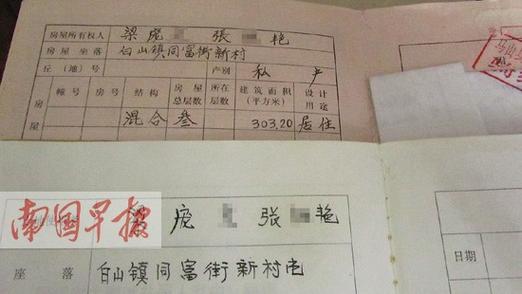 房屋所有权人 梁庞 張 艳
房屋坐落 白山镇同富街新村
丘(地)号 产别 私产
幢号 房号 结构 房屋总层数 所在层数 建筑面积(平方米) 设计用途
房屋
混合 叁 303.20 居住
南国早报
庞 张 艳
日期
座落 白山镇同富街新村屯